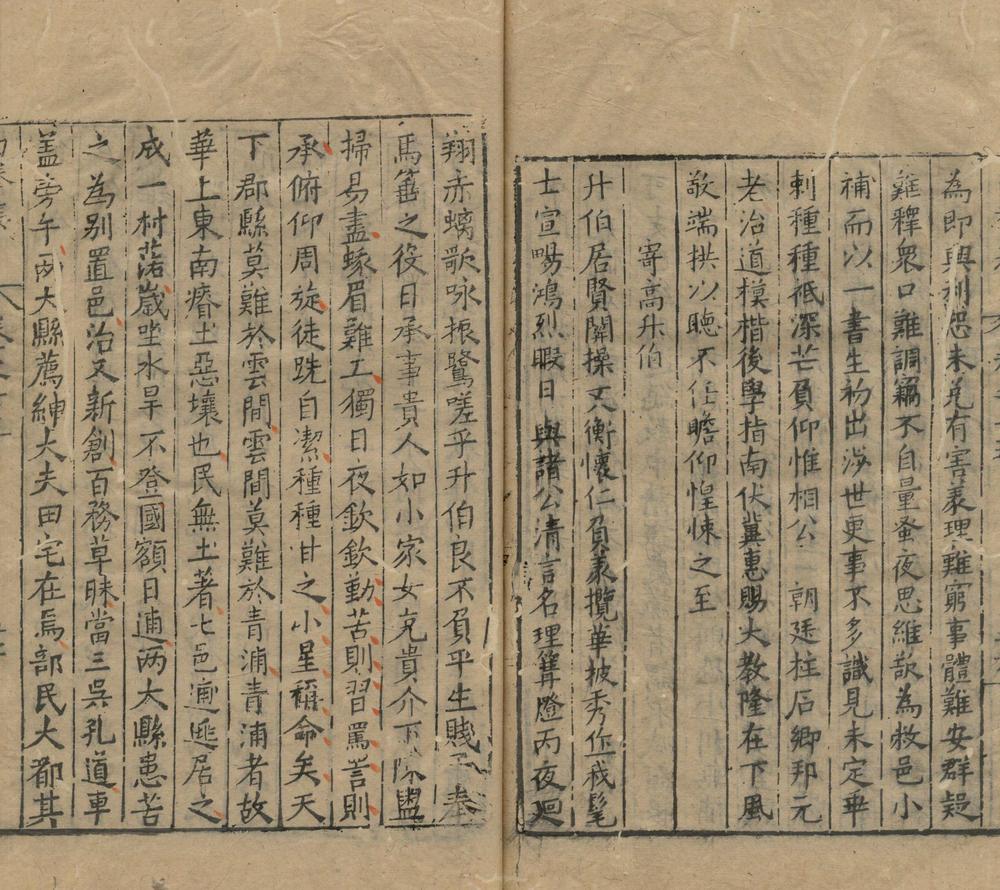 為即興利恐未見有害義理難窮事體難安群疑
難釋衆口難調竊不自量蚤夜思維欲為救邑小
補而以一書生初出涉世更事不多識見未定乖
剌種種祇深芒負仰惟相公 朝廷柱石鄉邦元
老治道模楷後學指南伏冀惠賜大教隆在下風
敬端拱以聽不任瞻仰惶悚之至
寄高升伯
升伯居賢關操文衡懷仁負義攬華披秀作我髦
士宣暢鴻烈暇日與諸公清言名理篝燈丙夜廻
翔赤螭歌咏振鷺嗟乎升伯良不負平生賤子奉
馬箠之役日承事貴人如小家女充貴介下陳盥
掃易盡蛾眉難工獨日夜欽欽勤苦則習罵詈則
承俯仰周旋徒跣自潔種種甘之小星稱命矣天
下郡縣莫難於雲間雲間莫難於青浦青浦者故
華上東南瘠土惡壤也民無土著七邑逋逃居之
成一村落歲坐水旱不登國額日逋兩大縣患苦
之為別置邑治又新創百務草昧當三吳孔道車
蓋旁午兩大縣薦紳大夫田宅在焉部民大都其